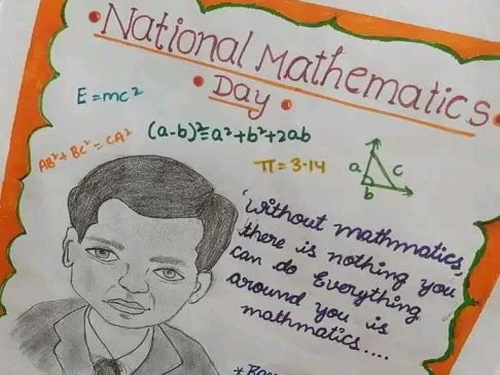 National Mathematics
Day
E = mc²
(a-b)² = a² + b² + 2ab
AB² + BC² = CA²
π = 3.14
a c
b
Without mathmatics,
there is nothing you
can do Everything
around you is
mathmatics....